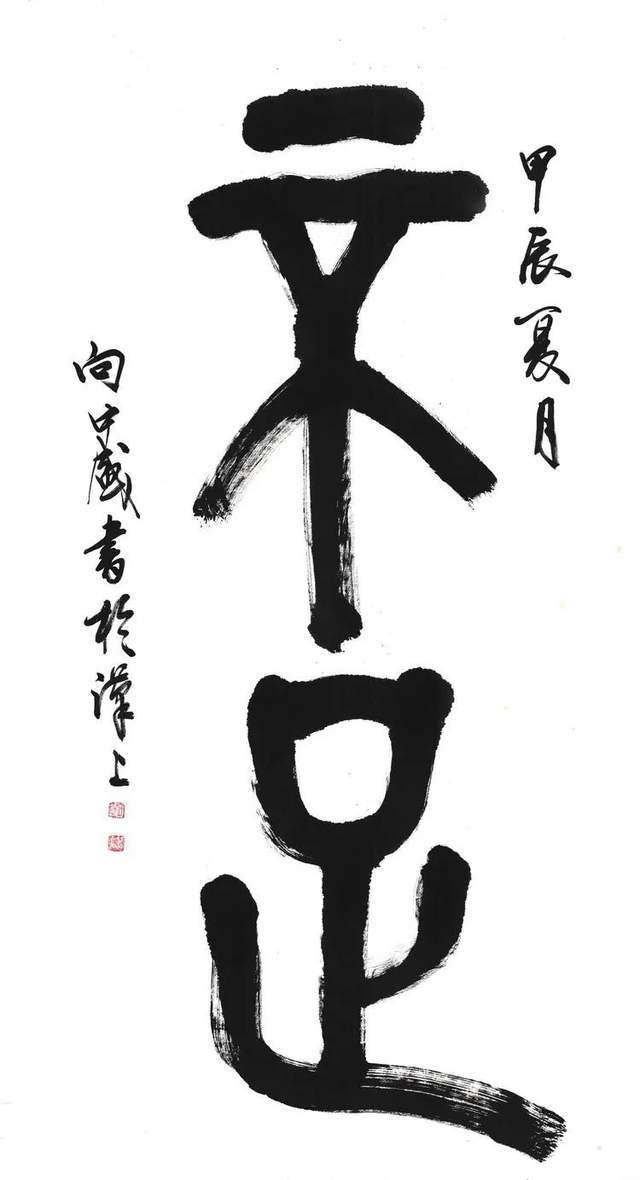 甲辰夏月
不足
向中盛書於漢上